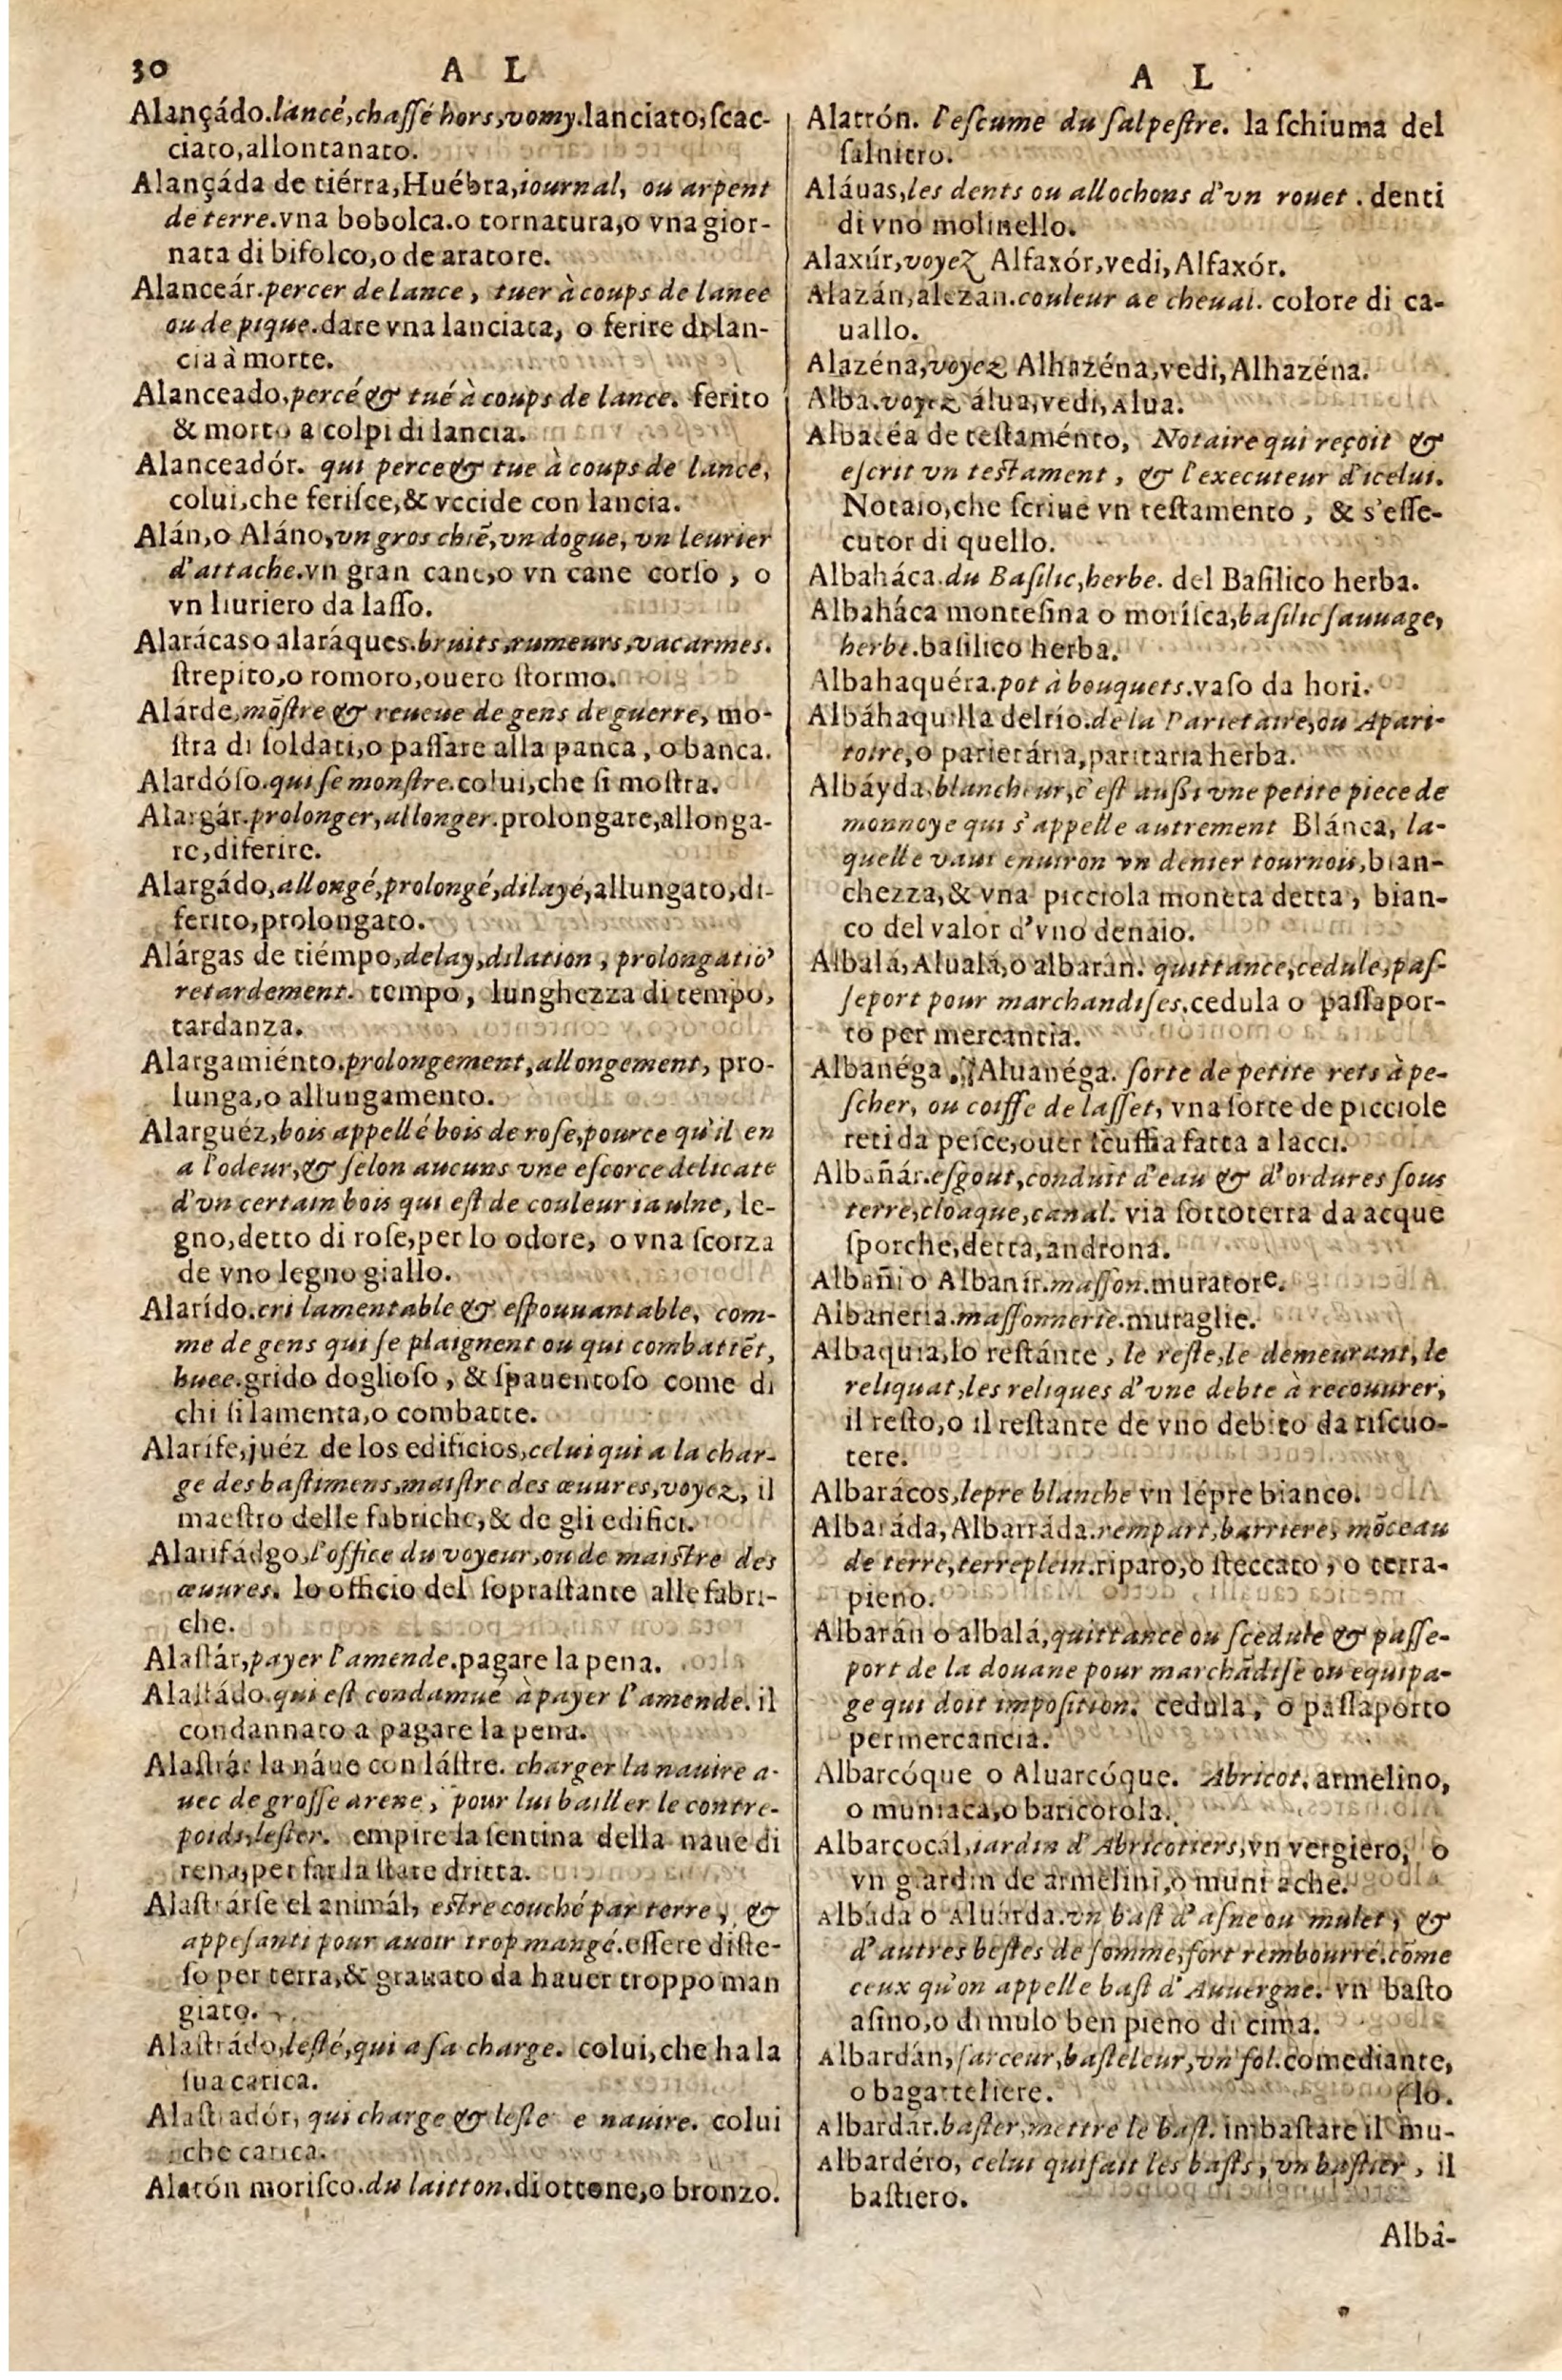 30 A L
Alançádo.lancé,chaſſé hors,vomy.lanciato,ſcac-
ciato,allontanato.
Alançáda de tiérra,Huébra,iournal, ou arpent
de terre.vna bobolca.o tornatura,o vna gior-
nata di bifolco,o de aratore.
Alanceár.percer de lance, tuer à coups de lance
ou de pique.dare vna lanciata, o ferire di lan-
cia à morte.
Alanceado,percé & tué à coups de lance. ferito
& morto a colpi di lancia.
Alanceadór. qui perce & tue à coups de lance,
colui,che feriſce,& vccide con lancia.
Alán,o Aláno,vn gros chiẽ,vn dogue, vn leurier
d'attache.vn gran cane,o vn cane corſo, o
vn liuriero da laſſo.
Alarácas o alaráques.bruits,rumeurs,vacarmes.
ſtrepito,o romoro,ouero ſtormo.
Alárde,mõſtre & reueue de gens de guerre, mo-
ſtra di ſoldati,o paſſare alla panca, o banca.
Alardóſo.qui ſe monſtre.colui,che ſi moſtra.
Alargár.prolonger,allonger.prolongare,allonga-
re,diferire.
Alargádo,allongé,prolongé,dilayé,allungato,di-
ferito,prolongato.
Alárgas de tiémpo,delay,dilation, prolongatiõ
retardement. tempo, lunghezza di tempo,
tardanza.
Alargamiénto.prolongement,allongement, pro-
lunga,o allungamento.
Alarguéz,bois appellé bois de roſe,pource qu'il en
a l'odeur,& ſelon aucuns vne eſcorce delicate
d'vn certain bois qui eſt de couleur iaulne, le-
gno,detto di roſe,per lo odore, o vna ſcorza
de vno legno giallo.
Alarído.cri lamentable & eſpouuantable, com-
me de gens qui ſe plaignent ou qui combattẽt,
huee.grido doglioſo, & ſpauentoſo come di
chi ſi lamenta,o combatte.
Alarífe,juéz de los edificios,celui qui a la char-
ge des baſtimens,maiſtre des œuures,voyez, il
maeſtro delle fabriche,& de gli edifici.
Alarifádgo,l'office du voyeur,ou de maiſtre des
œuures. lo officio del ſopraſtante alle fabri-
che.
Alaſtár,payer l'amende.pagare la pena.
Alaſtádo.qui eſt condamué à payer l'amende. il
condannato a pagare la pena.
Alaſtrár la náue con láſtre. charger la nauire a-
uec de groſſe arene, pour lui bailler le contre-
poids,leſter. empire la ſentina della naue di
rena,per far la ſtare dritta.
Alaſtrárſe el animál, eſtre couché par terre, &
appeſanti pour auoir trop mangé.eſſere diſte-
ſo per terra,& grauato da hauer troppo man
giato.
Alaſtrádo,leſté,qui a ſa charge. colui,che ha la
ſua carica.
Alaſtradór, qui charge & leſte e nauire. colui
che carica.
Alatón moriſco.du laitton.di ottone,o bronzo.
A L
Alatrón. l'eſcume du ſalpeſtre. la ſchiuma del
ſalnitro.
Aláuas,les dents ou allochons d'vn rouet. denti
di vno molinello.
Alaxúr,voyez Alfaxór,vedi,Alfaxór.
Alazán,alezan.couleur de cheual. colore di ca-
uallo.
Alazéna,voyez Alhazéna,vedi,Alhazéna.
Alba.voyez álua,vedi,Alua.
Albacéa de teſtaménto, Notaire qui reçoit &
eſcrit vn teſtament, & l'executeur d'icelui.
Notaio,che ſcriue vn teſtamento, & s'eſſe-
cutor di quello.
Albaháca.du Baſilic,herbe. del Baſilico herba.
Albaháca monteſina o moriſca,baſilic ſauuage,
herbe.baſilico herba.
Albahaquéra.pot à bouquets.vaſo da hori.
Albáhaquilla del río.de la Parietaire,ou Apari-
toire,o parietária,paritaria herba.
Albáyda,blancheur,c'eſt auſſi vne petite piece de
monnoye qui s'appelle autrement Blánca, la-
quelle vaut enuiron vn denier tournois,bian-
chezza,& vna picciola moneta detta, bian-
co del valor d'vno denaio.
Albalá,Alualá,o albarán. quittance,cedule,paſ-
ſeport pour marchandiſes.cedula o paſſapor-
to per mercantia.
Albanéga. Aluanéga. ſorte de petite rets à pe-
ſcher, ou coiffe de laſſet, vna ſorte de picciole
reti da peſce,ouer ſcuffia fatta a lacci.
Albañár.eſgout,conduit d'eau & d'ordures ſous
terre,cloaque,canal. via ſottoterra da acque
ſporche,detta,androna.
Albañí o Albanír.maſſon.muratore.
Albaneria.maſſonnerie.muraglie.
Albaquia,lo reſtánte, le reſte,le demeurant,le
reliquat,les reliques d'vne debte à recouurer,
il reſto,o il reſtante de vno debito da riſcuo-
tere.
Albarácos,lepre blanche vn lépre bianco.
Albaráda,Albarráda.rempart,barriere, mõceau
de terre,terreplein.riparo,o ſteccato, o terra-
pieno.
Albarán o albalá,quittance ou ſcedule & paſſe-
port de la douane pour marchãdiſe ou equipa-
ge qui doit impoſition. cedula, o paſſaporto
per mercancia.
Albarcóque o Aluarcóque. Abricot. armelino,
o muniaca,o baricotola.
Albarcocál,iardin d'Abricotiers,vn vergiero, o
vn giardin de armelini,o muniache.
Albáda o Aluárda.vn baſt d'aſne ou mulet, &
d'autres beſtes de ſomme,fort rembourré.cõme
ceux qu'on appelle baſt d'Auuergne. vn baſto
aſino,o di mulo ben pieno di cima.
Albardán,farceur,baſteleur,vn fol.comediante,
o bagatteliere. (lo.
Albardár.baſter,mettre le baſt. imbaſtare il mu-
Albardéro, celui qui fait les baſts, vn baſtier, il
baſtiero.
Albâ-